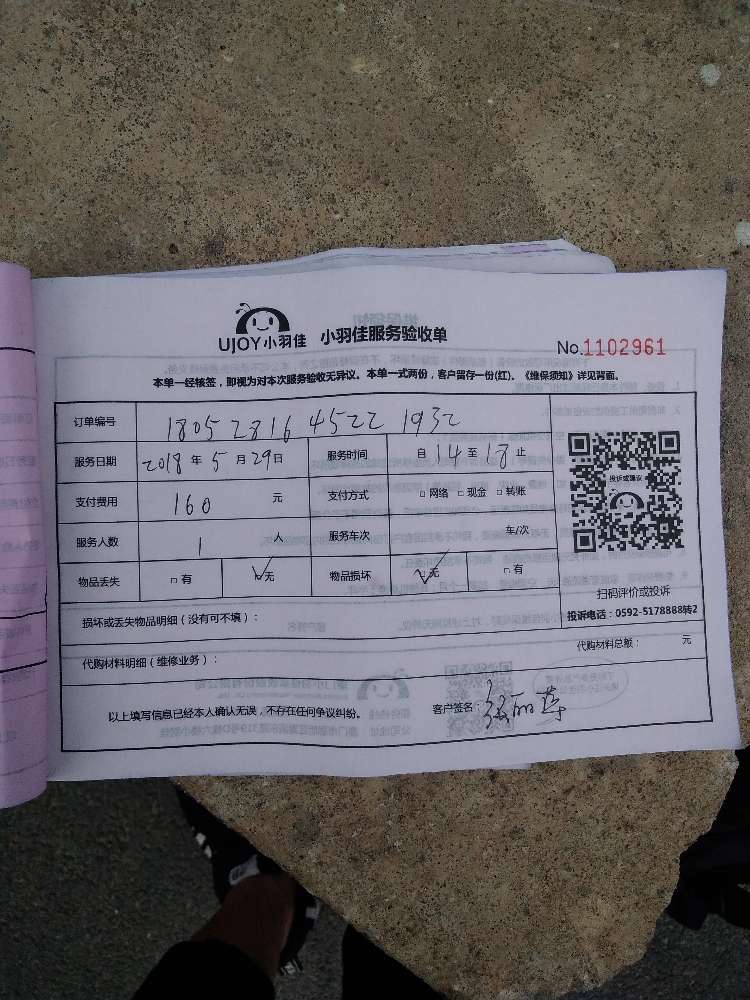 UJOY小羽佳 小羽佳服务验收单
No.1102961
本单一经核签，即视为对本次服务验收无异议。本单一式两份，客户留存一份(红)。《维保须知》详见背面。
订单编号 180528164522 1932
服务日期 2018年5月29日 服务时间 自14至18止
支付费用 160 元 支付方式 □网络 □现金 □转账
投诉或建议
服务人数 1 人 服务车次 车/次
物品丢失 □有 ☑无 物品损坏 ☑无 □有
扫码评价或投诉
投诉电话：0592-5178888转2
损坏或丢失物品明细（没有可不填）：
代购材料明细（维修业务）： 代购材料总额： 元
以上填写信息已经本人确认无误，不存在任何争议纠纷。 客户签名：